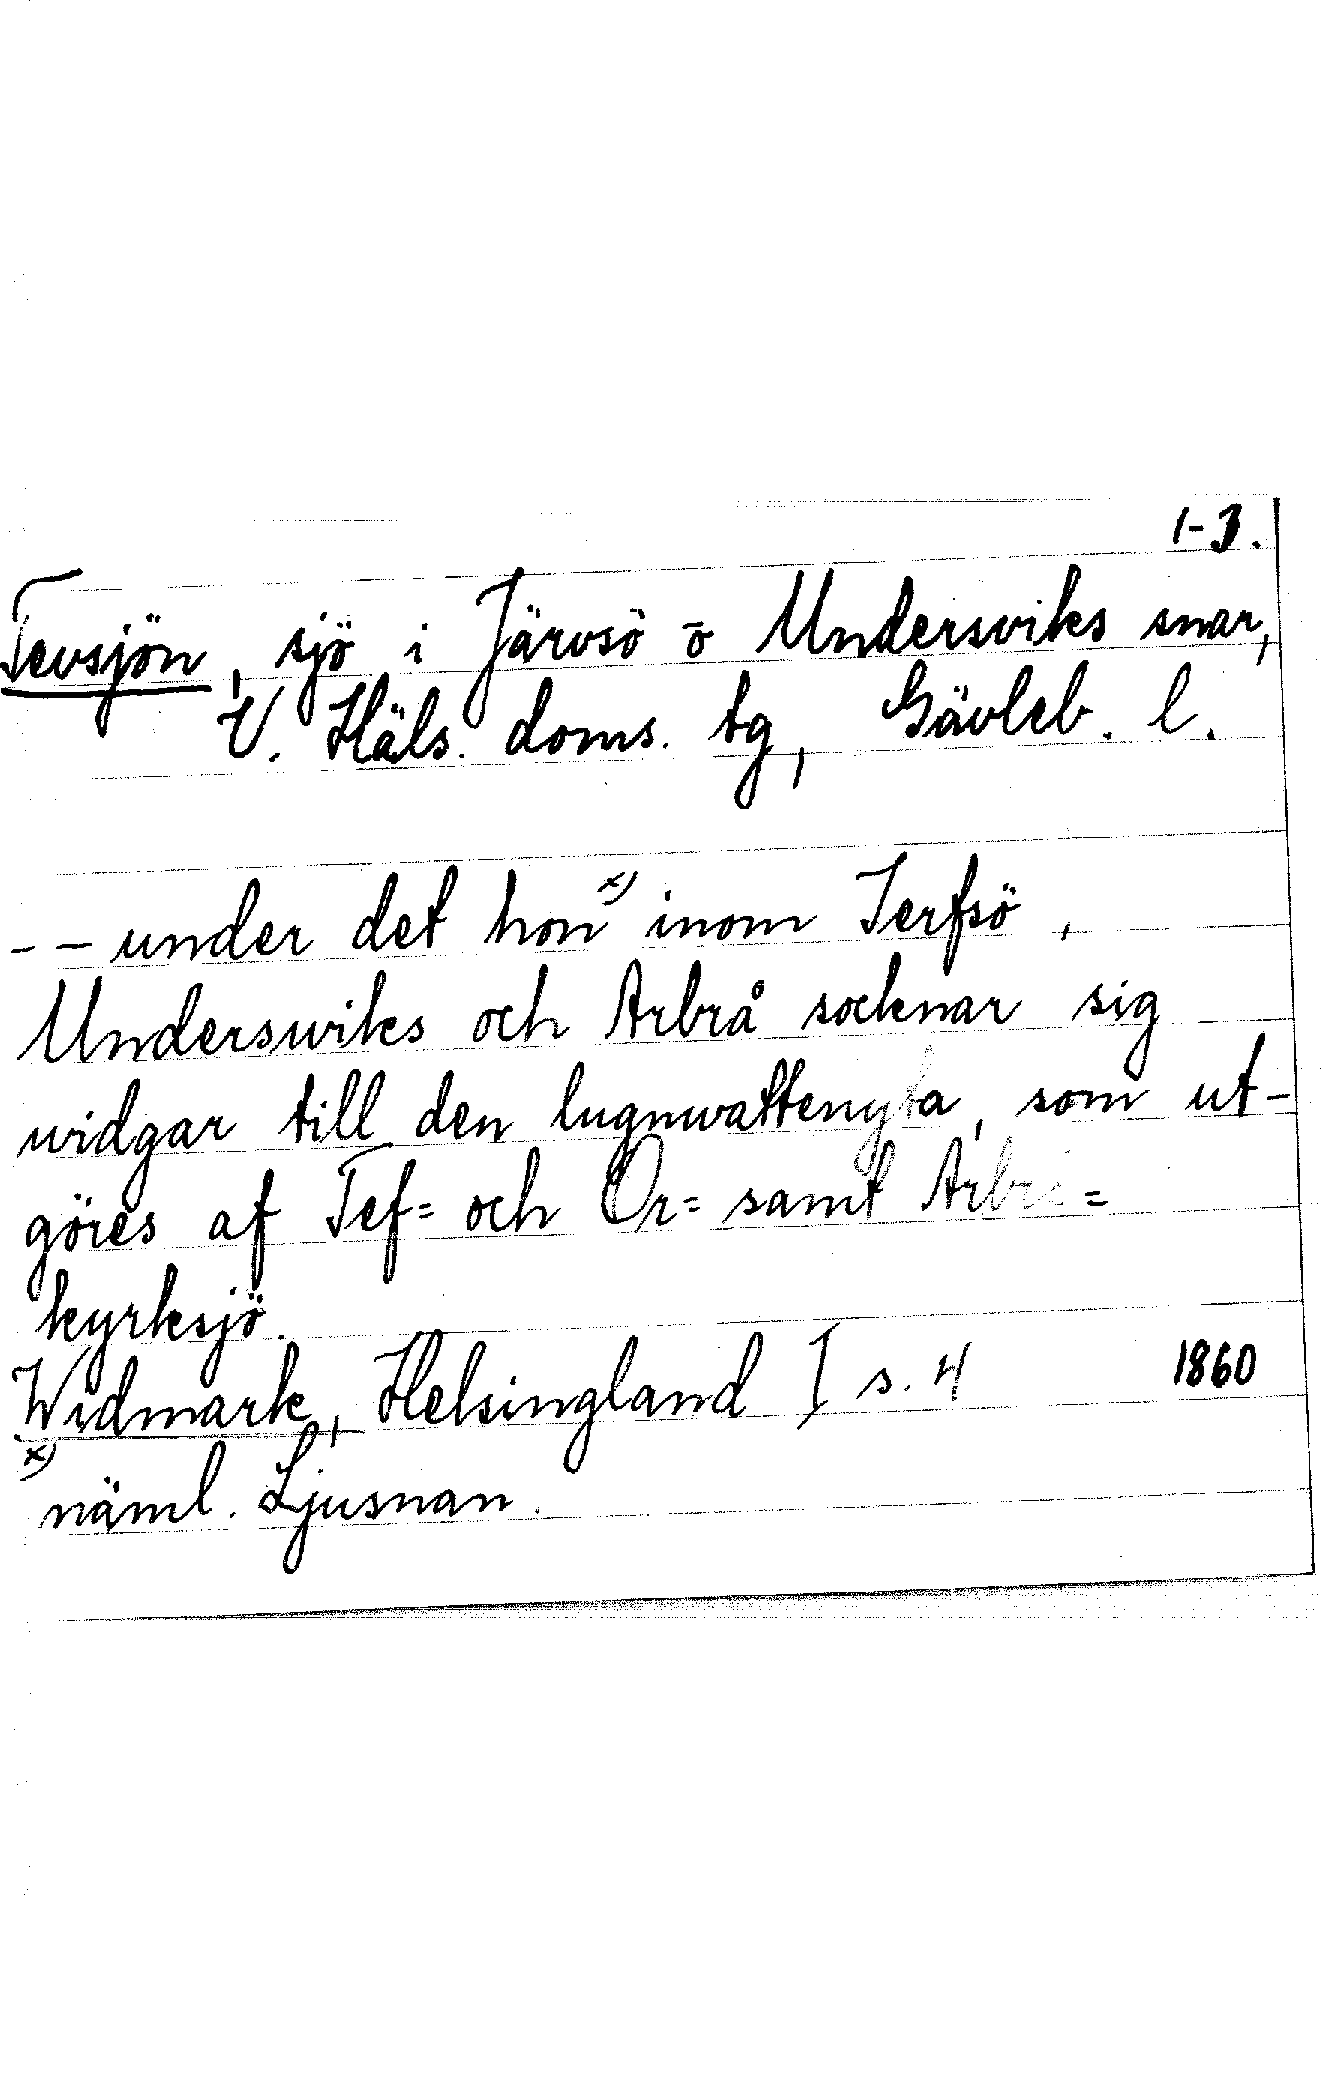 1-3.
Tevsjön, sjö i Järvsö o Undersviks snar,
V. Häls. doms. tg, Gävleb. l.
-- under det hon x) inom Jerfsö,
Underswiks och Arbrå socknar sig
widgar till den lugnwattenyta, som ut-
göres af Tef= och Or= samt Arbrå=
kyrksjö.
Widmark, Helsingland I s. 4 1860
x)
näml. Ljusnan.